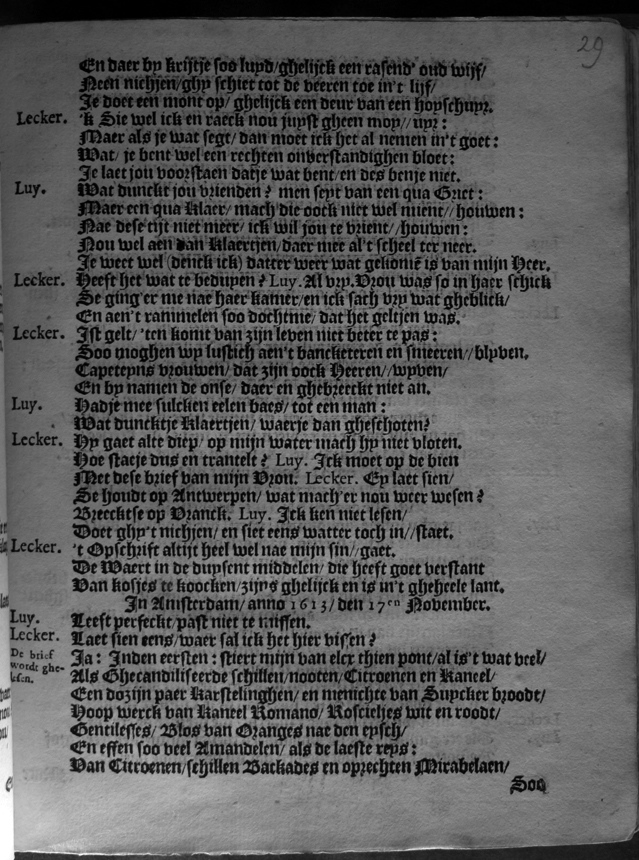 29
En daer by krijtje soo luyd/ghelijck een rasend' oud wijf/
Neen nichjen/ghy schiet tot de veeren toe in't lijf/
Je doet een mont op/ ghelijck een deur van een hoyschuyr.
Lecker. 'k Sie wel ick en raeck nou juyst gheen moy//uyr:
Maer als je wat segt/ dan moet ick het al nemen in't goet:
Wat/ je bent wel een rechten onverstandighen bloet:
Je laet jou voorstaen datje wat bent/ en des benje niet.
Luy. Wat dunckt jou vrienden? men seyt van een qua Griet:
Maer een qua Klaer/ mach die oock niet wel nuent//houwen:
Nae dese tijt niet meer/ ick wil jou te vrient//houwen:
Nou wel aen dan Klaertjen/ daer mee al't scheel ter neer.
Je weet wel (denck ick) datter weer wat gekomē is van mijn Heer.
Lecker. Heeft het wat te beduyen? Luy. Al vry. Vrou was so in haer schick
Se ging'er me nae haer kamer/ en ick sach vry wat gheblick/
En aen't rammelen soo dochtme/ dat het geltjen was.
Lecker. Ist gelt/ 'ten komt van zijn leven niet beter te pas:
Soo moghen wy lustich aen't bancketeren en smeeren//blyven.
Capeteyns vrouwen/ dat zijn oock Heeren//wyven/
En by namen de onse/ daer en ghebreeckt niet an.
Luy. Hadje mee sulcken eelen baes/ tot een man:
Wat duncktje Klaertjen/ waerje dan gheschoten?
Lecker. Hy gaet alte diep/ op mijn water mach hy niet vloten.
Hoe staeje dus en trantelt? Luy. Ick moet op de bien
Met dese brief van mijn Vrou. Lecker. Ey laet sien/
Se houdt op Antwerpen/ wat mach'er nou weer wesen?
Breecktse op Vranck. Luy. Ick ken niet lesen/
Doet ghy't nichjen/ en siet eens watter toch in//staet.
Lecker. 't Opschrift altijt heel wel nae mijn sin//gaet.
De Waert in de duysent middelen/ die heeft goet verstant
Van kosjes te koocken/zijns ghelijck en is in't gheheele lant.
In Amsterdam/ anno 1613/ den 17en November.
Luy. Leest perfeckt/ past niet te missen.
Lecker. Laet sien eens/ waer sal ick het hier vissen?
De brief wordt ghelesen. Ja: Inden eersten: stiert mijn van elcx thien pont/ al is't wat veel/
Als Ghecandiliseerde schillen/nooten/ Citroenen en Kaneel/
Een dozijn paer Karstelinghen/ en menichte van Suycker broodt/
Hoop werck van Kaneel Romano/ Roscieljes wit en roodt/
Gentilesses/ Blos van Oranges nae den eysch/
En effen soo veel Amandelen/ als de laeste reys:
Van Citroenen/schillen Backades en oprechten Mirabelaen/
Soo